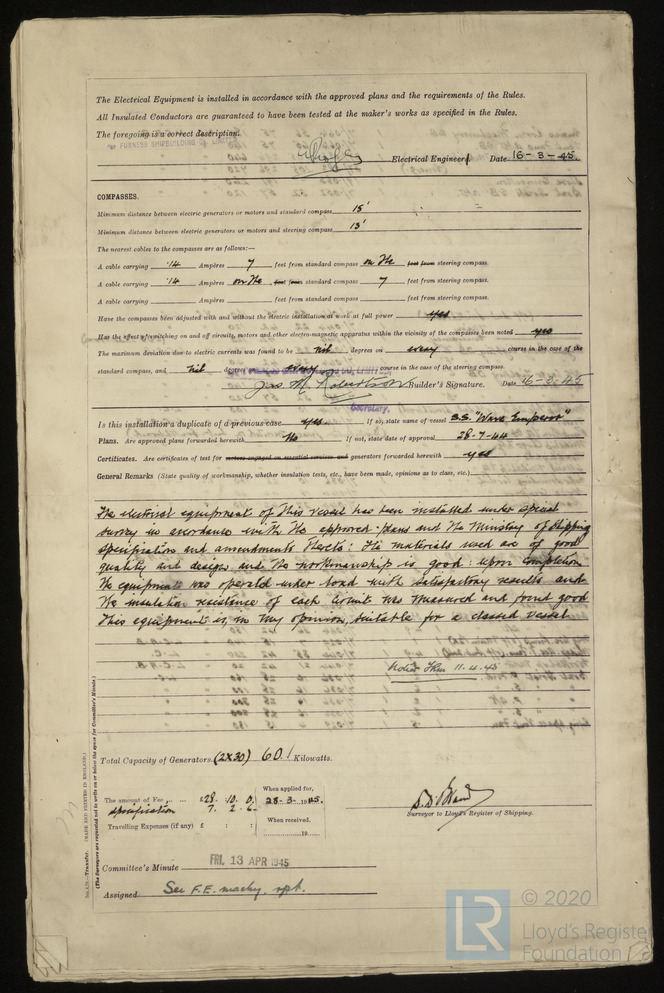 The Electrical Equipment is installed in accordance with the approved plans and the requirements of the Rules.
All Insulated Conductors are guaranteed to have been tested at the maker's works as specified in the Rules.
The foregoing is a correct description.
FOR FURNESS SHIPBUILDING CO. LIMITED
Electrical Engineer Date 16-3-45.
COMPASSES.
Minimum distance between electric generators or motors and standard compass 15'
Minimum distance between electric generators or motors and steering compass 13'
The nearest cables to the compasses are as follows:—
A cable carrying .14 Ampères 7 feet from standard compass on the feet from steering compass.
A cable carrying .14 Ampères on the feet from standard compass 7 feet from steering compass.
A cable carrying Ampères feet from standard compass feet from steering compass.
Have the compasses been adjusted with and without the electric installation at work at full power yes
Has the effect of switching on and off circuits, motors and other electro-magnetic apparatus within the vicinity of the compasses been noted yes
The maximum deviation due to electric currents was found to be nil degrees on every course in the case of the
standard compass, and nil degrees on every course in the case of the steering compass.
Jas. M. Robertson Builder's Signature. Date 16-3-45
Secretary.
Is this installation a duplicate of a previous case yes. If so, state name of vessel S.S. "Wave Emperor"
Plans. Are approved plans forwarded herewith No If not, state date of approval 28-7-44
Certificates. Are certificates of test for motors engaged on essential services and generators forwarded herewith yes
General Remarks (State quality of workmanship, whether insulation tests, etc., have been made, opinions as to class, etc.)
The electrical equipment of this vessel has been installed under special
survey in accordance with the approved plans and the Ministry of Shipping
specification and amendments thereto: The materials used are of good
quality and design, and the workmanship is good: upon completion
the equipment was operated under load with satisfactory results and
the insulation resistance of each circuit was measured and found good
This equipment is, in my opinion, suitable for a classed vessel
Noted 11.4.45
Total Capacity of Generators (2x30) 60. Kilowatts.
The amount of Fee ... £28. 10. 0. When applied for, 28-3-1945.
specification 7. 2. 6.
Travelling Expenses (if any) £ : : When received, 19
Surveyor to Lloyd's Register of Shipping.
Committee's Minute FRI. 13 APR 1945
Assigned See F.E. machy. rpt.
Transfer. (MADE AND PRINTED IN ENGLAND.)
(The Surveyors are requested not to write on or below the space for Committee's Minute.)
LR © 2020
Lloyd's Register
Foundation